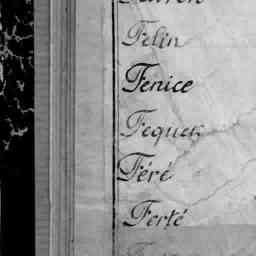 Felin
Fenice
Fequen
Féré
Ferté